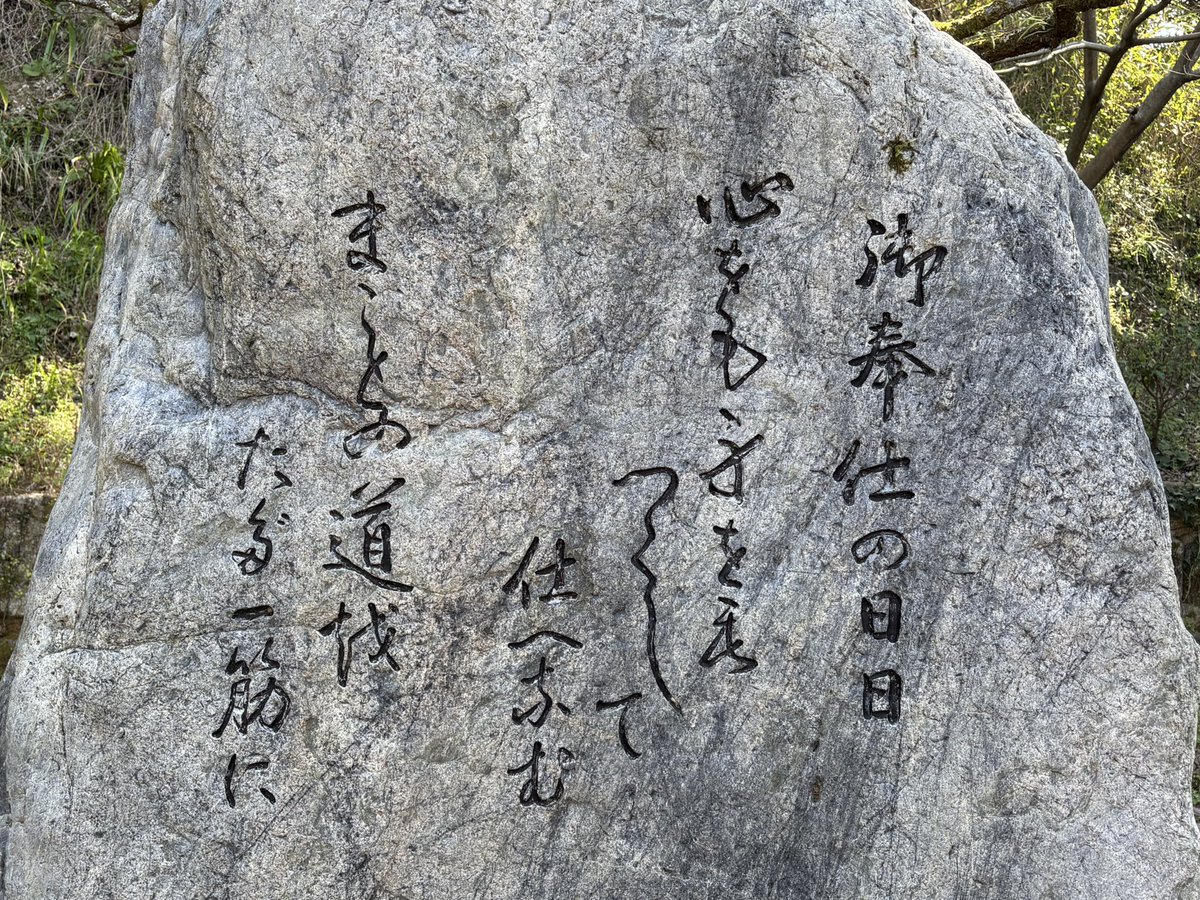 御奉仕の日日
心をも身をも
つくして
仕へなむ
まことの道を
ただ一筋に